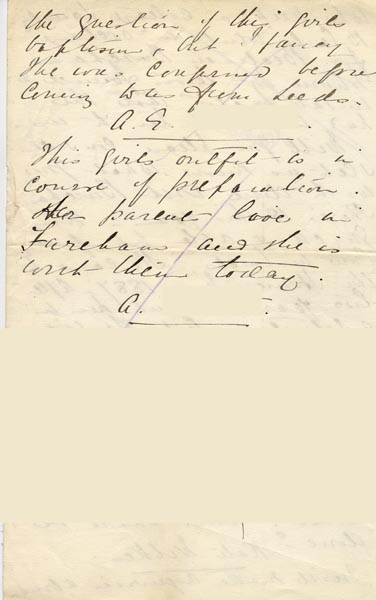 the question of this girls
baptism, but I fancy
she was confirmed before
coming to us from Leeds.
A. G.
This girls outfit is in
course of preparation.
Her parents live in
Fareham and she is
with them today.
A.